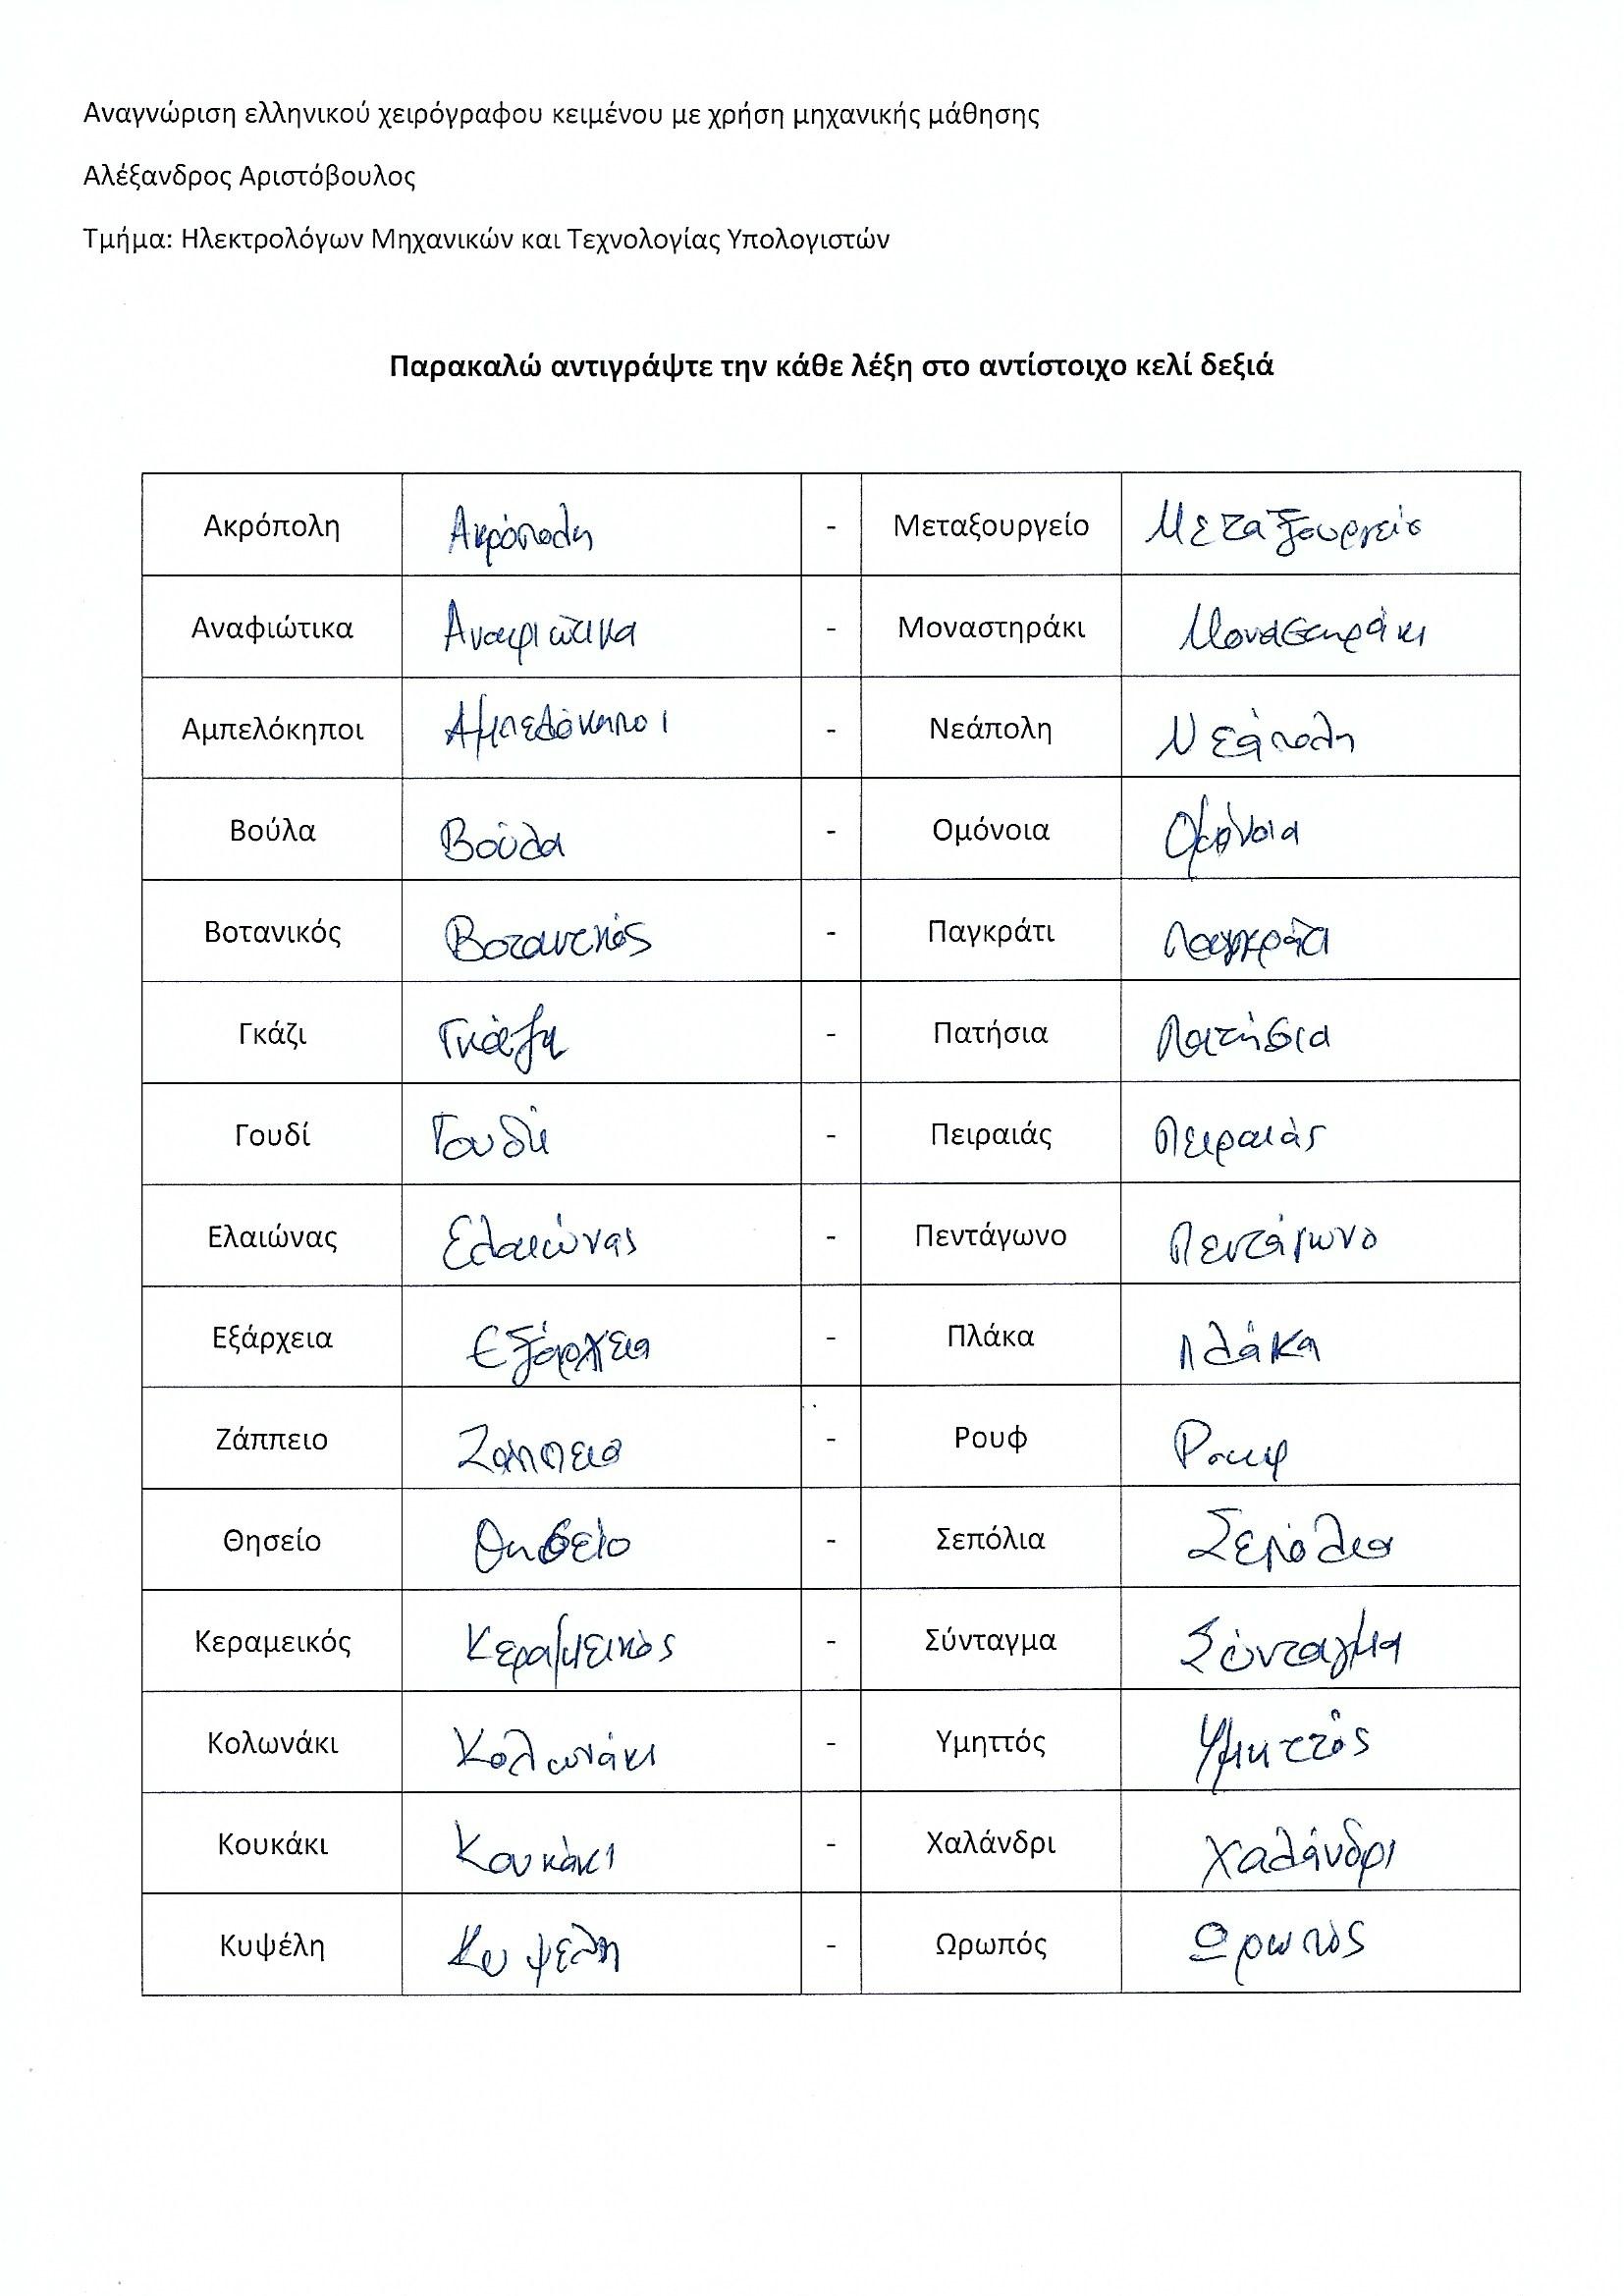 Αναγνώριση ελληνικού χειρόγραφου κειμένου με χρήση μηχανικής μάθησης
Αλέξανδρος Αριστόβουλος
Τμήμα: Ηλεκτρολόγων Μηχανικών και Τεχνολογίας Υπολογιστών
Παρακαλώ αντιγράψτε την κάθε λέξη στο αντίστοιχο κελί δεξιά
Ακρόπολη Ακρόπολη - Μεταξουργείο Μεταξουργείο
Αναφιώτικα Αναφιώτικα - Μοναστηράκι Μοναστηράκι
Αμπελόκηποι Αμπελόκηποι - Νεάπολη Νεάπολη
Βούλα Βούλα - Ομόνοια Ομόνοια
Βοτανικός Βοτανικός - Παγκράτι Παγκράτι
Γκάζι Γκάζη - Πατήσια Πατήσια
Γουδί Γουδή - Πειραιάς Πειραιάς
Ελαιώνας Ελαιώνας - Πεντάγωνο Πεντάγωνο
Εξάρχεια Εξάρχεια - Πλάκα Πλάκα
Ζάππειο Ζάππειο - Ρουφ Ρουφ
Θησείο Θησείο - Σεπόλια Σεπόλια
Κεραμεικός Κεραμεικός - Σύνταγμα Σύνταγμα
Κολωνάκι Κολωνάκι - Υμηττός Υμηττός
Κουκάκι Κουκάκι - Χαλάνδρι Χαλάνδρι
Κυψέλη Κυψέλη - Ωρωπός Ωρωπός